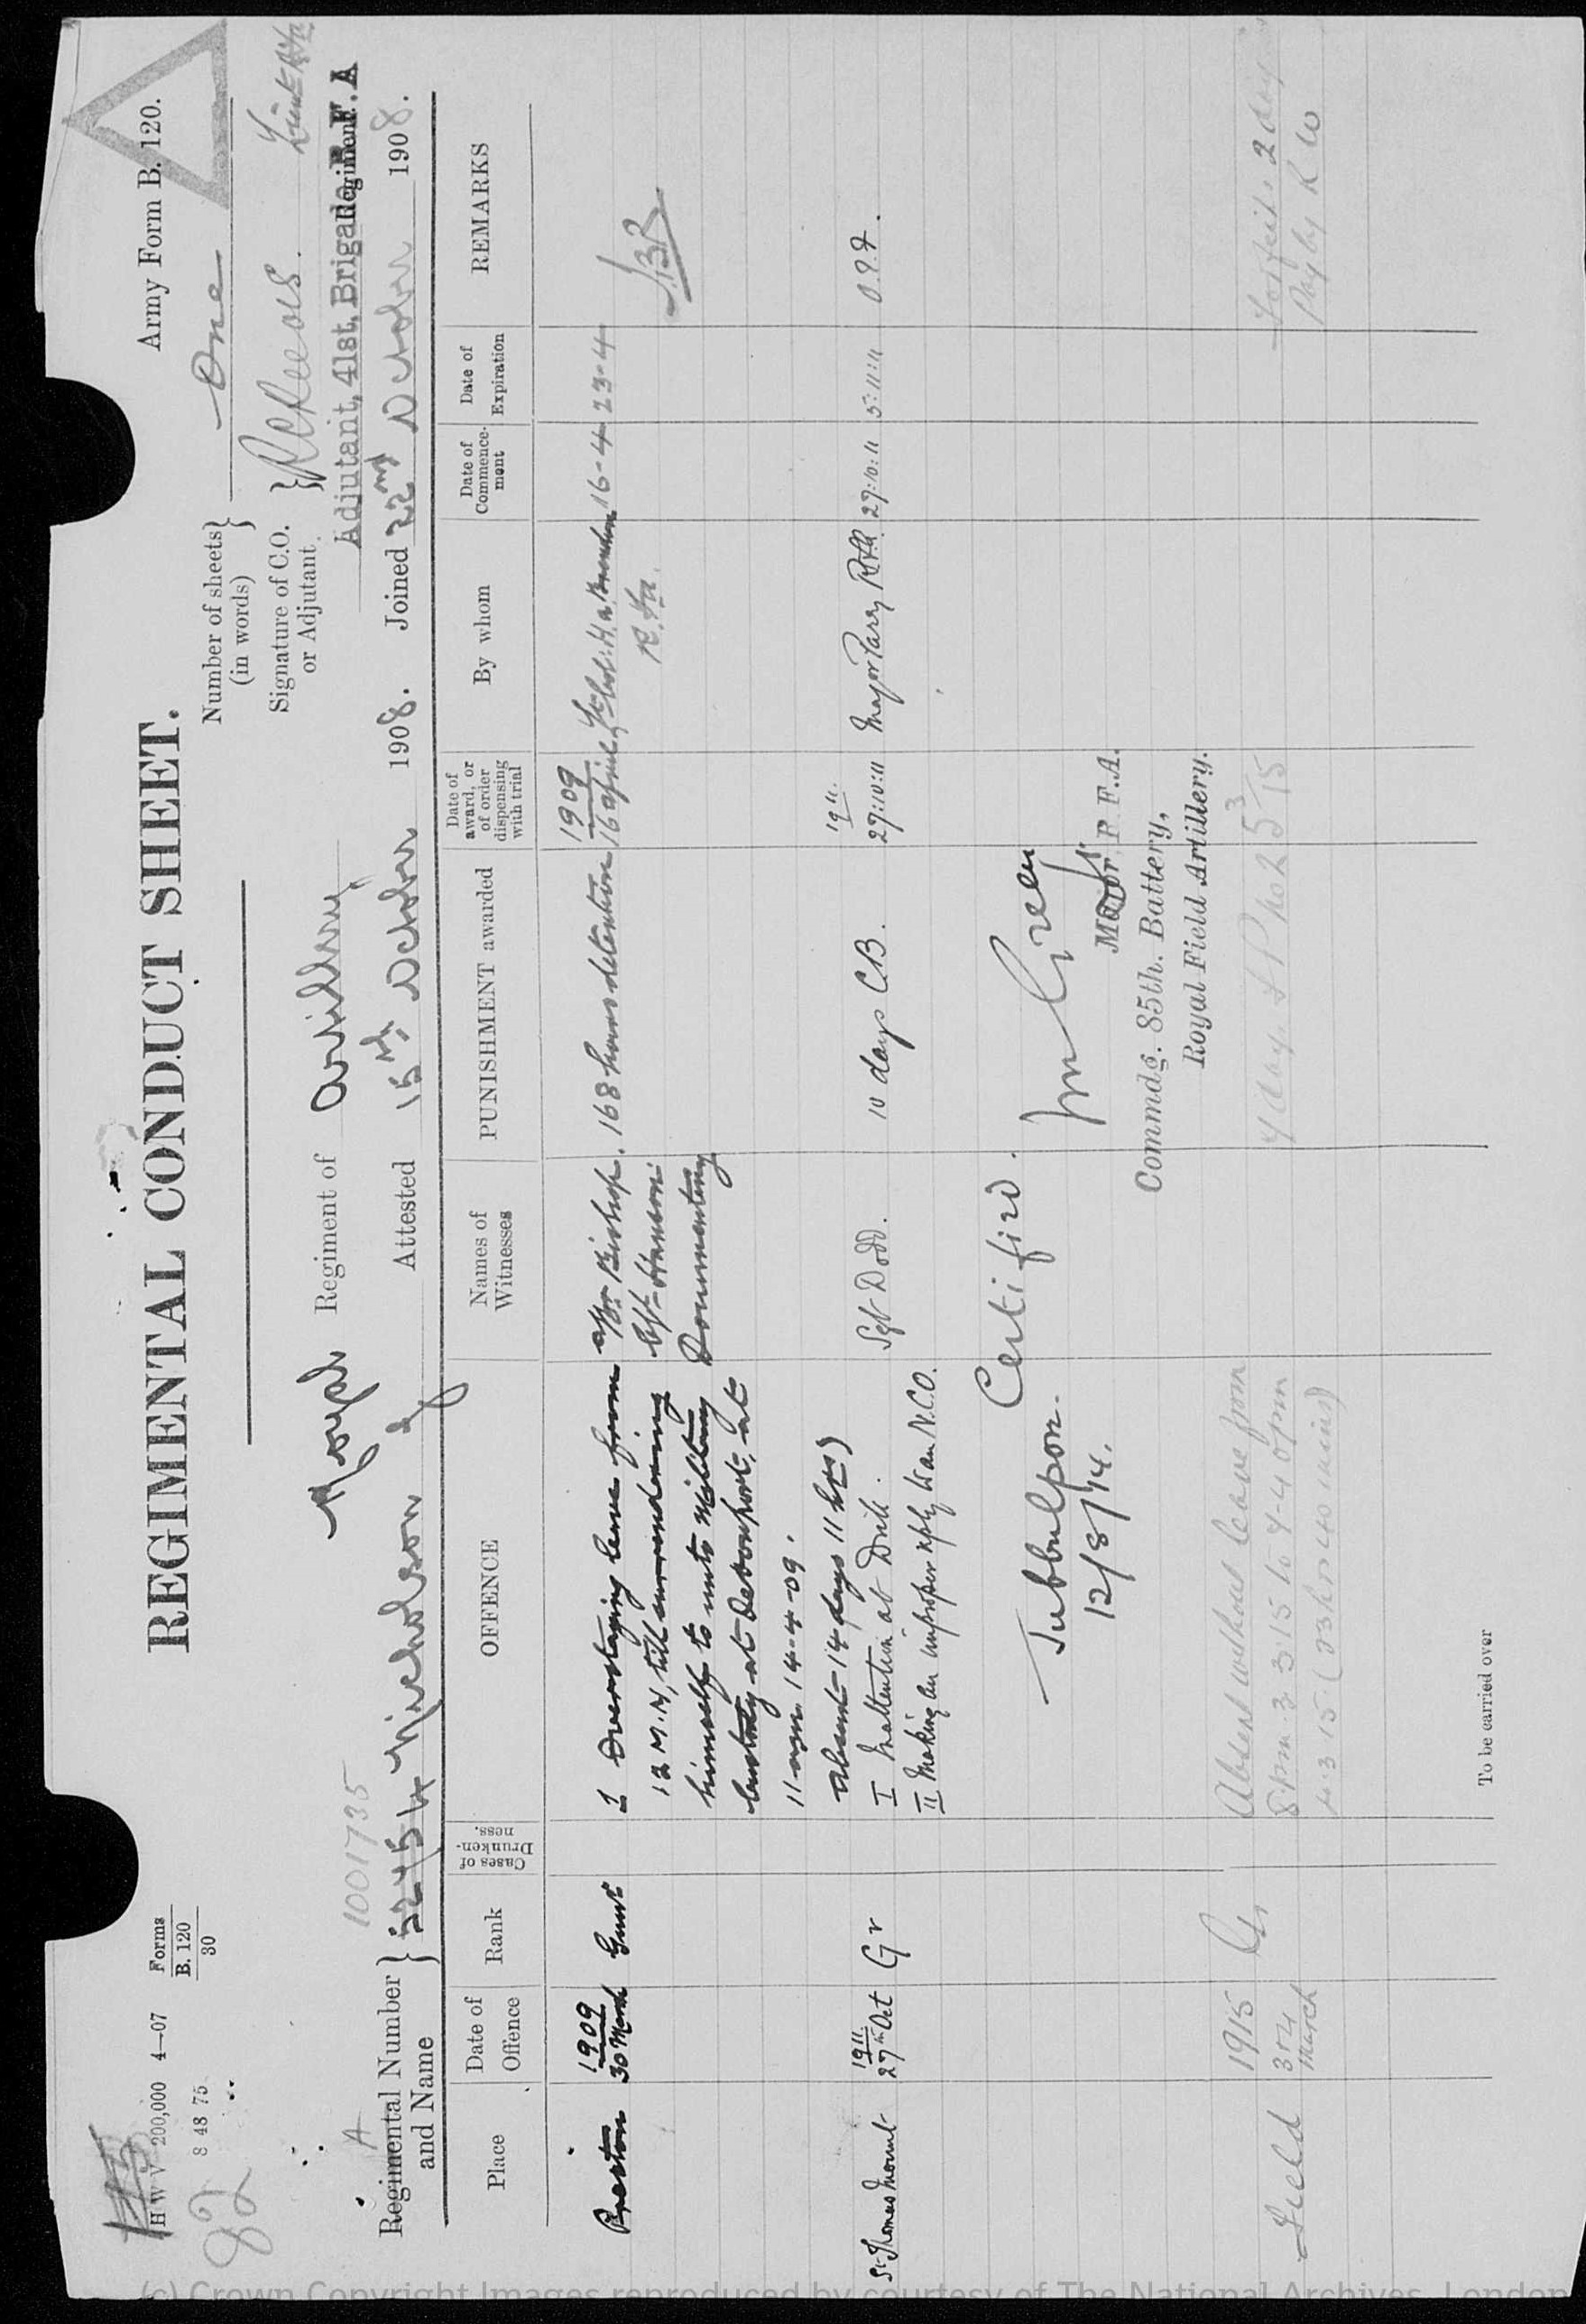 Army Form B. 120.
H W V 200,000 4—07 Forms
B. 120
30
8 48 75
82
REGIMENTAL CONDUCT SHEET.
Number of sheets
(in words) One
Signature of C.O.
or Adjutant. Lieut
Adjutant, 41st. Brigade R.F.A
Regiment.
1001735
A
Royal Regiment of Artillery
Regimental Number
and Name 52454 Nicholson J
Attested 15th October 1908. Joined 22nd October 1908.
Place
Date of
Offence
Rank
Cases of
Drunken-
ness.
OFFENCE
Names of
Witnesses
PUNISHMENT awarded
Date of
award, or
of order
dispensing
with trial
By whom
Date of
Commence-
ment
Date of
Expiration
REMARKS
Preston 1909 30 March Gunr I Overstaying leave from Bishop. 168 hours detention 1909 16 April 16-4 23-4
12 M.N, till surrendering
himself to into Military Documentary
Custody at Devonport, at
11 a.m. 14-4-09.
Absent=14 days 11 hrs)
St. Thomas Mount 1911. 27th Oct Gr I Inattention at Drill. Sgt Dodd. 10 days C.B. 1911. 27:10:11 Major Parry RFA. 27:10:11 5:11:11
II Making an improper reply to an N.C.O.
Certified.
Jubbulpore.
12/8/14.
Major, R.F.A.
Commdg. 85th. Battery,
Royal Field Artillery.
Field 1915 3rd March Gr Absent without leave from
8 pm 3.3.15 to 7-40 pm
4.3.15 (23 hrs 40 mins)
7 days F P No 2 5/3/15 Forfeits 2 days
Pay by R W
To be carried over
(c) Crown Copyright Images reproduced by courtesy of The National Archives, London